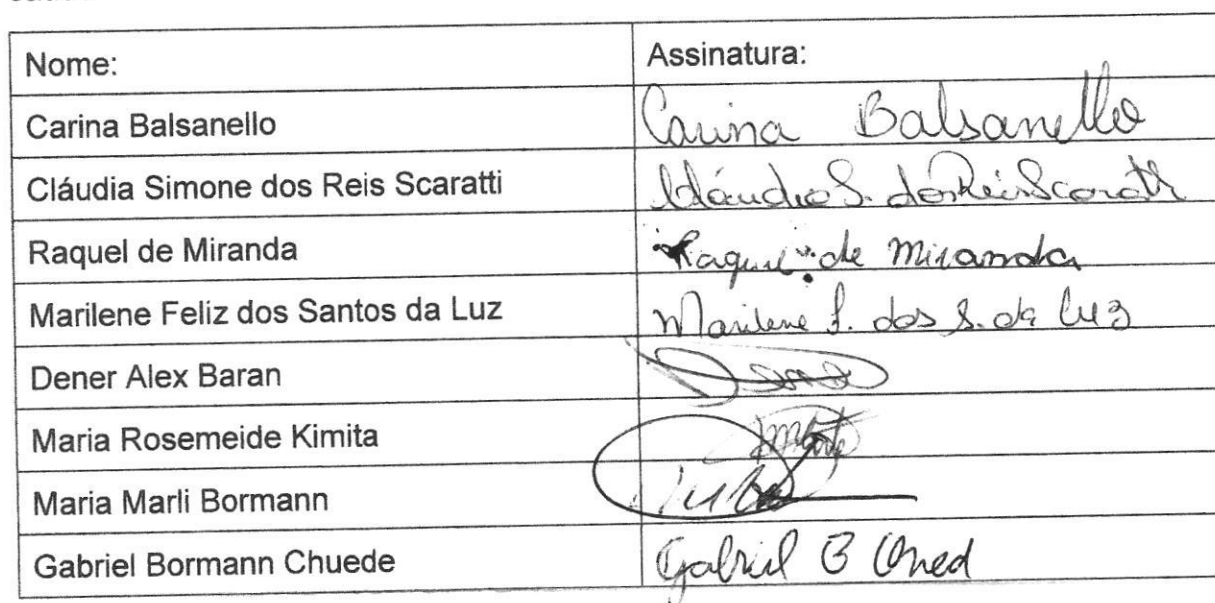 Nome: Assinatura:
Carina Balsanello Carina Balsanello
Cláudia Simone dos Reis Scaratti Cláudia S. dos Reis Scaratti
Raquel de Miranda Raquel de Miranda
Marilene Feliz dos Santos da Luz Marilene f. dos S. da Luz
Dener Alex Baran
Maria Rosemeide Kimita
Maria Marli Bormann
Gabriel Bormann Chuede Gabriel B